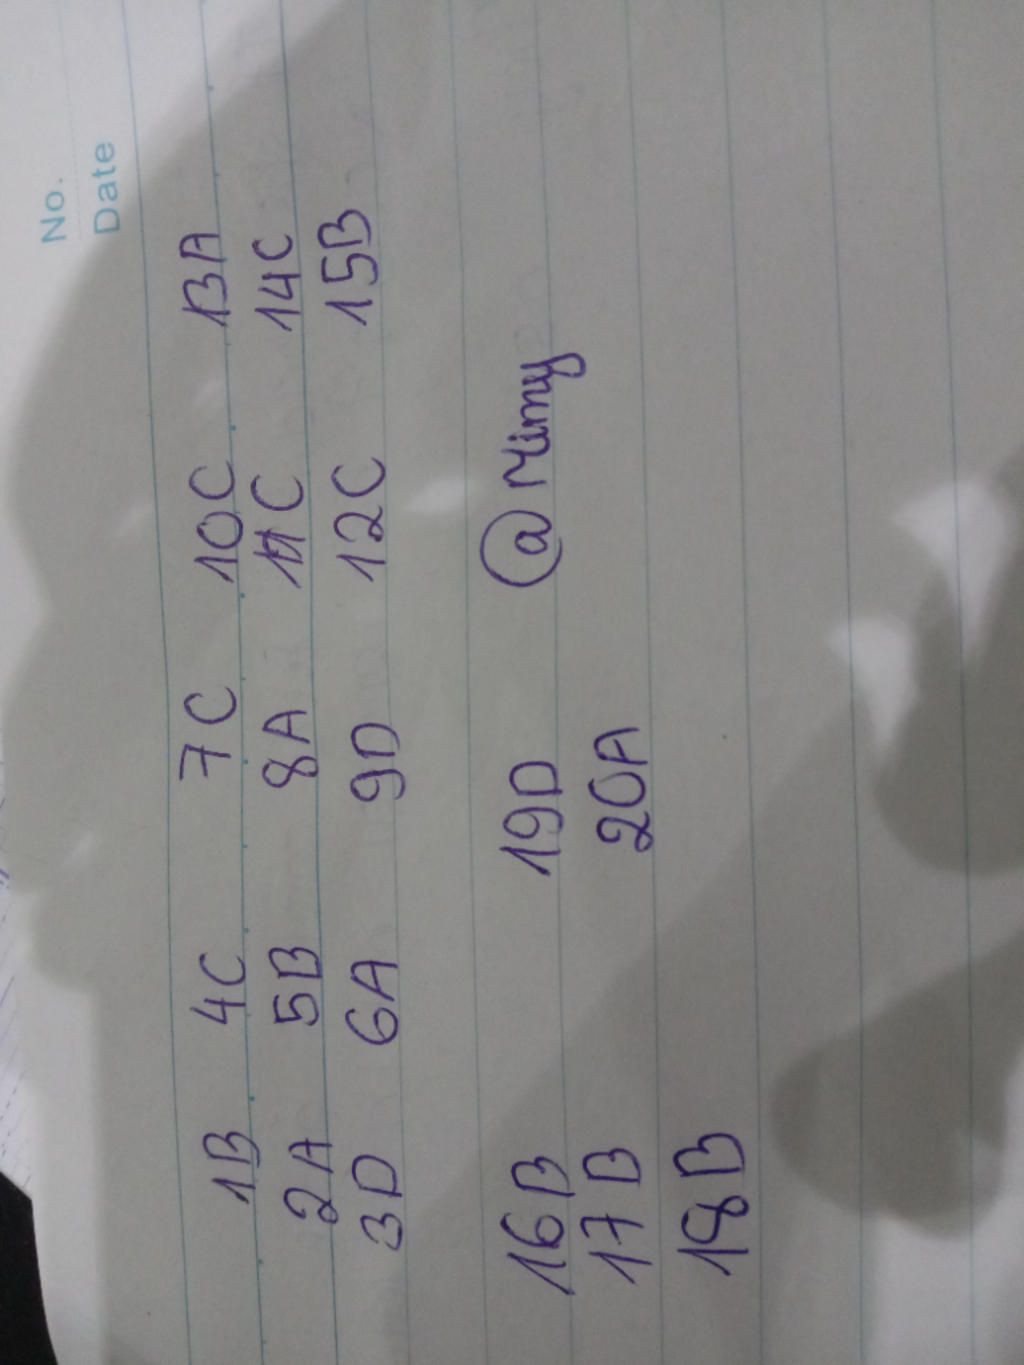 No.
Date
1B 4C 7C 10C 13A
2A 5B 8A 11C 14C
3D 6A 9D 12C 15B
16B 19D @Mimy
17B 20A
18B